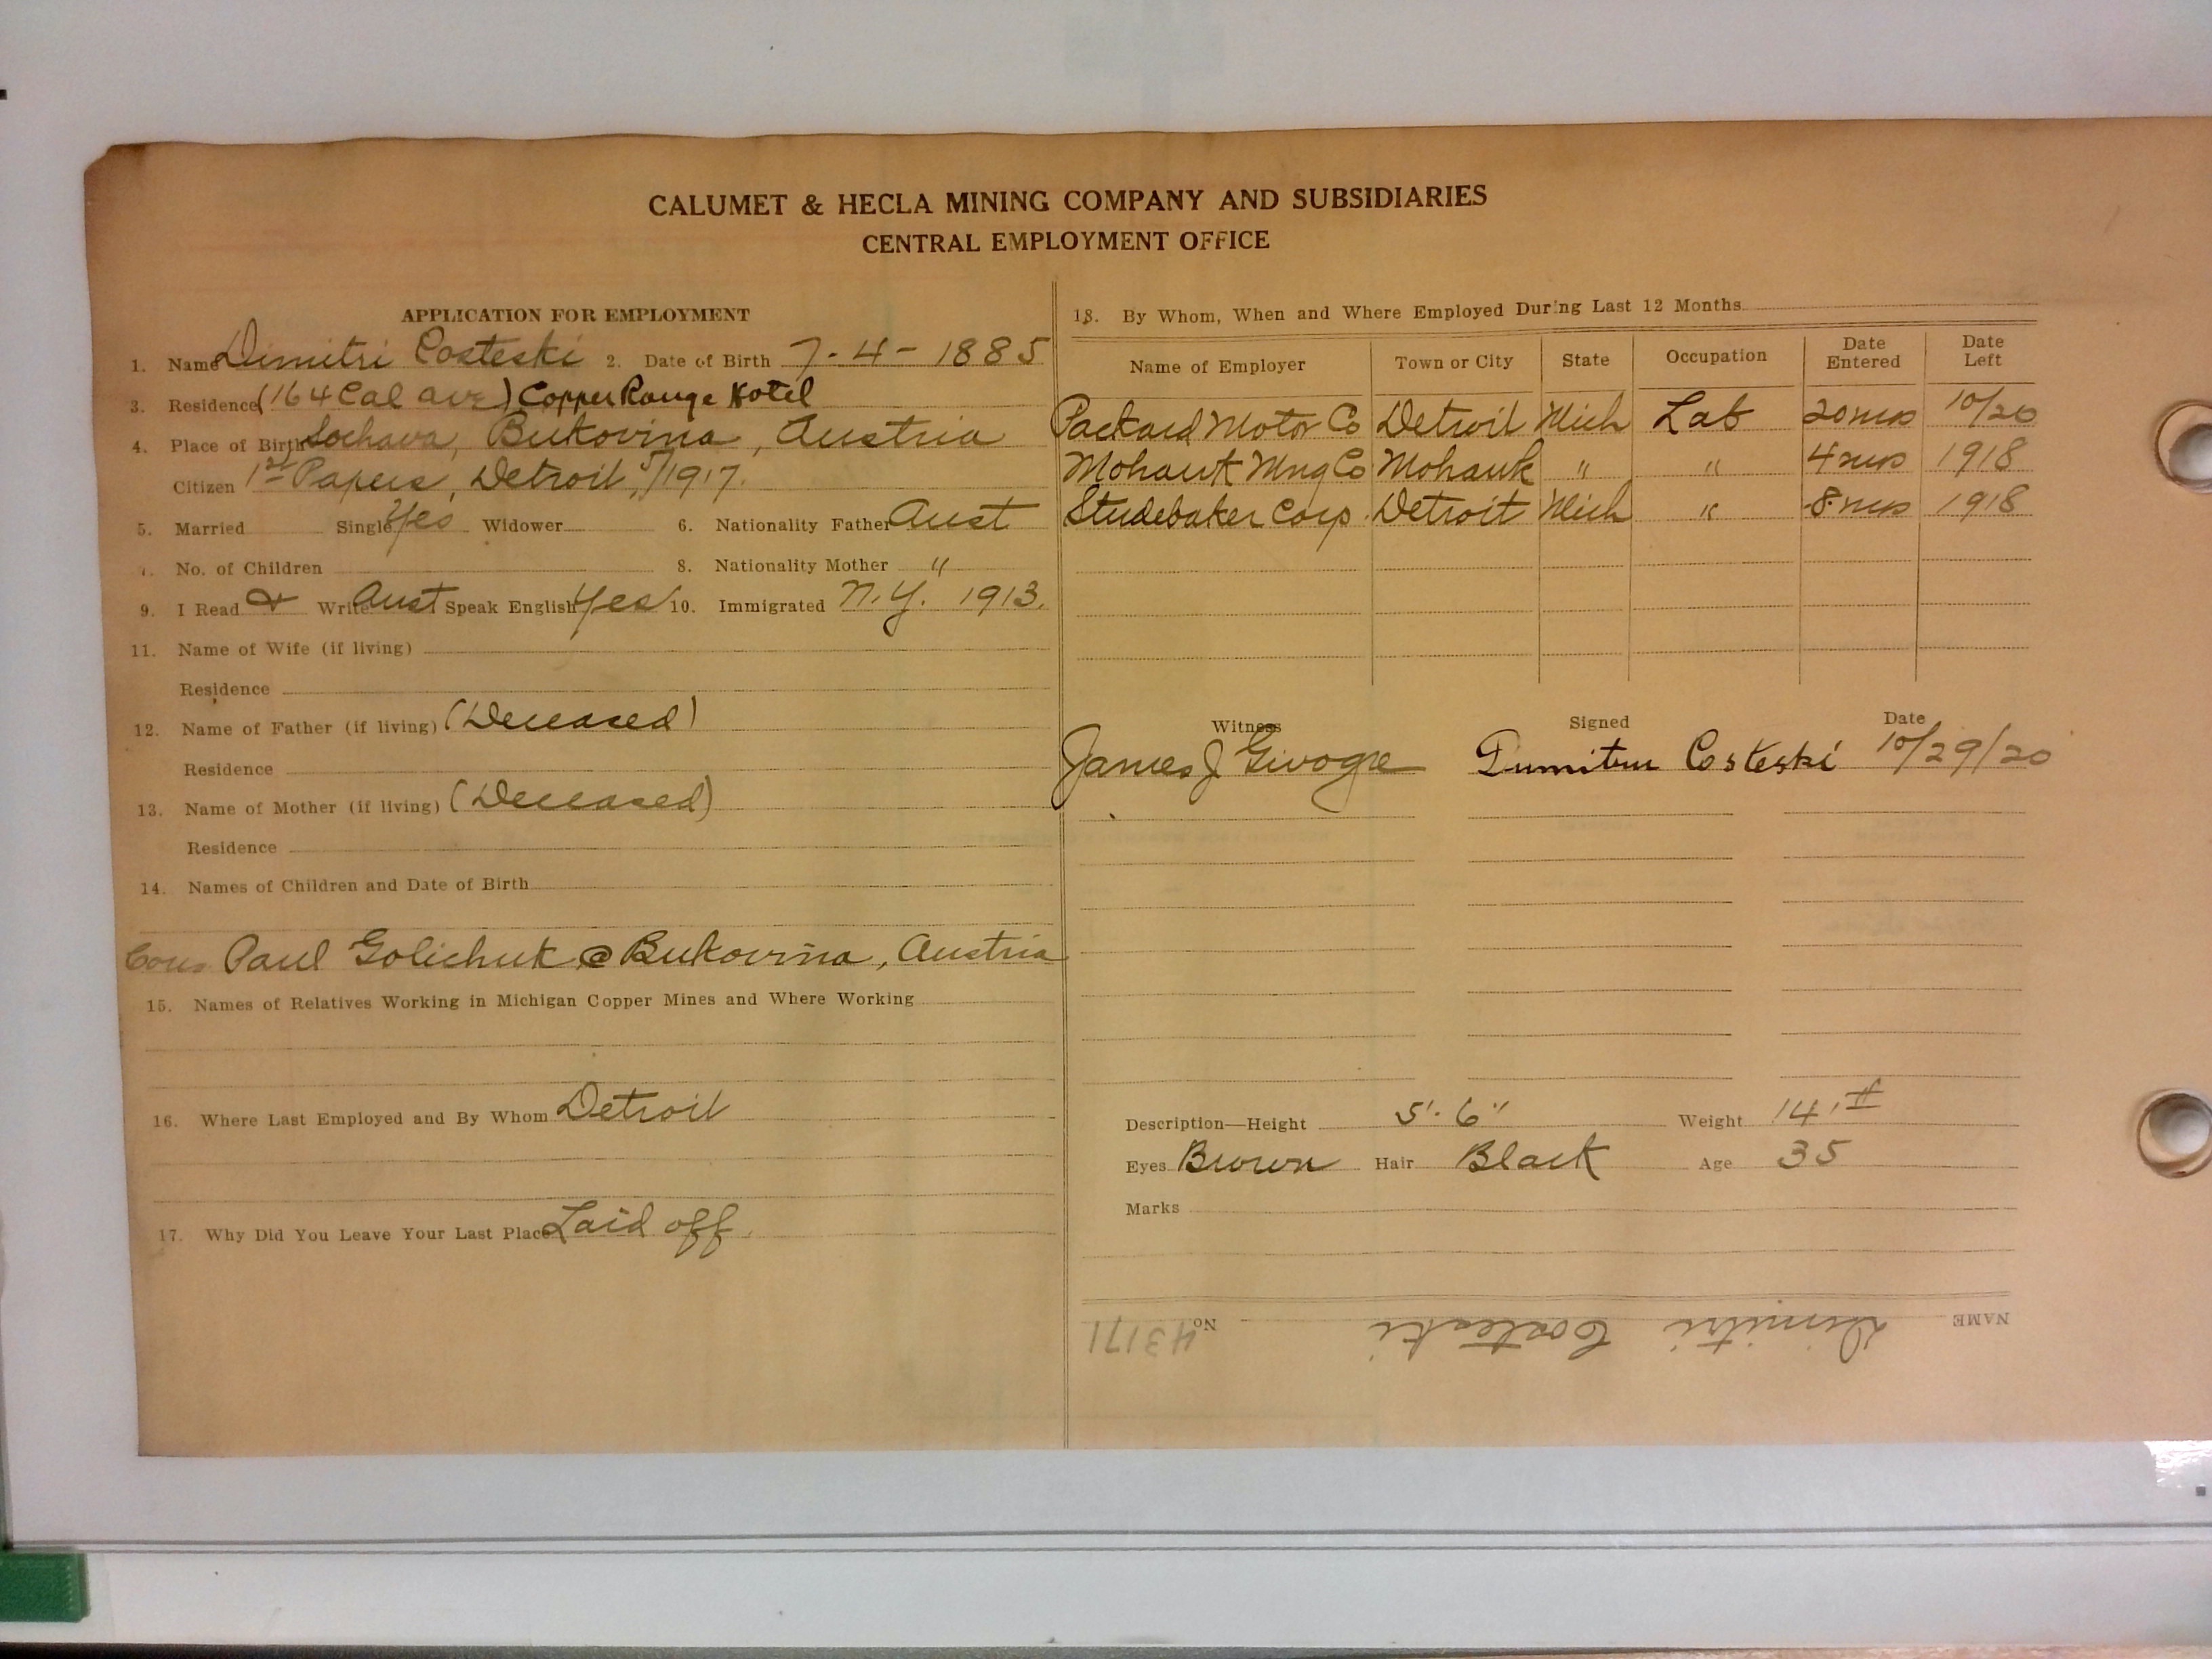 CALUMET & HECLA MINING COMPANY AND SUBSIDIARIES
CENTRAL EMPLOYMENT OFFICE
APPLICATION FOR EMPLOYMENT
1. Name Dimitri Costeski 2. Date of Birth 7-4-1885
3. Residence (164 Cal ave) Copper Range Hotel
4. Place of Birth Sochava, Bukovina, Austria
Citizen 1st Papers, Detroit, 5/1917.
5. Married Single Yes Widower 6. Nationality Father Aust
No. of Children 8. Nationality Mother "
9. I Read & Write Aust Speak English Yes 10. Immigrated N.Y. 1913.
11. Name of Wife (if living)
Residence
12. Name of Father (if living) (Deceased)
Residence
13. Name of Mother (if living) (Deceased)
Residence
14. Names of Children and Date of Birth
Cous Paul Golichuk @ Bukovina, Austria
15. Names of Relatives Working in Michigan Copper Mines and Where Working
16. Where Last Employed and By Whom Detroit
17. Why Did You Leave Your Last Place Laid off.
18. By Whom, When and Where Employed During Last 12 Months
Name of Employer Town or City State Occupation Date Entered Date Left
Packard Motor Co Detroit Mich Lab 20 mos 10/20
Mohawk Mng Co Mohawk " " 4 mos 1918
Studebaker Corp. Detroit Mich " 8 mos 1918
Witness Signed Date
James J Dumitru Costeski 10/29/20
Description—Height 5'. 6" Weight
Eyes Brown Hair Black Age 35
Marks
NAME Dimitri Costeski No 43171